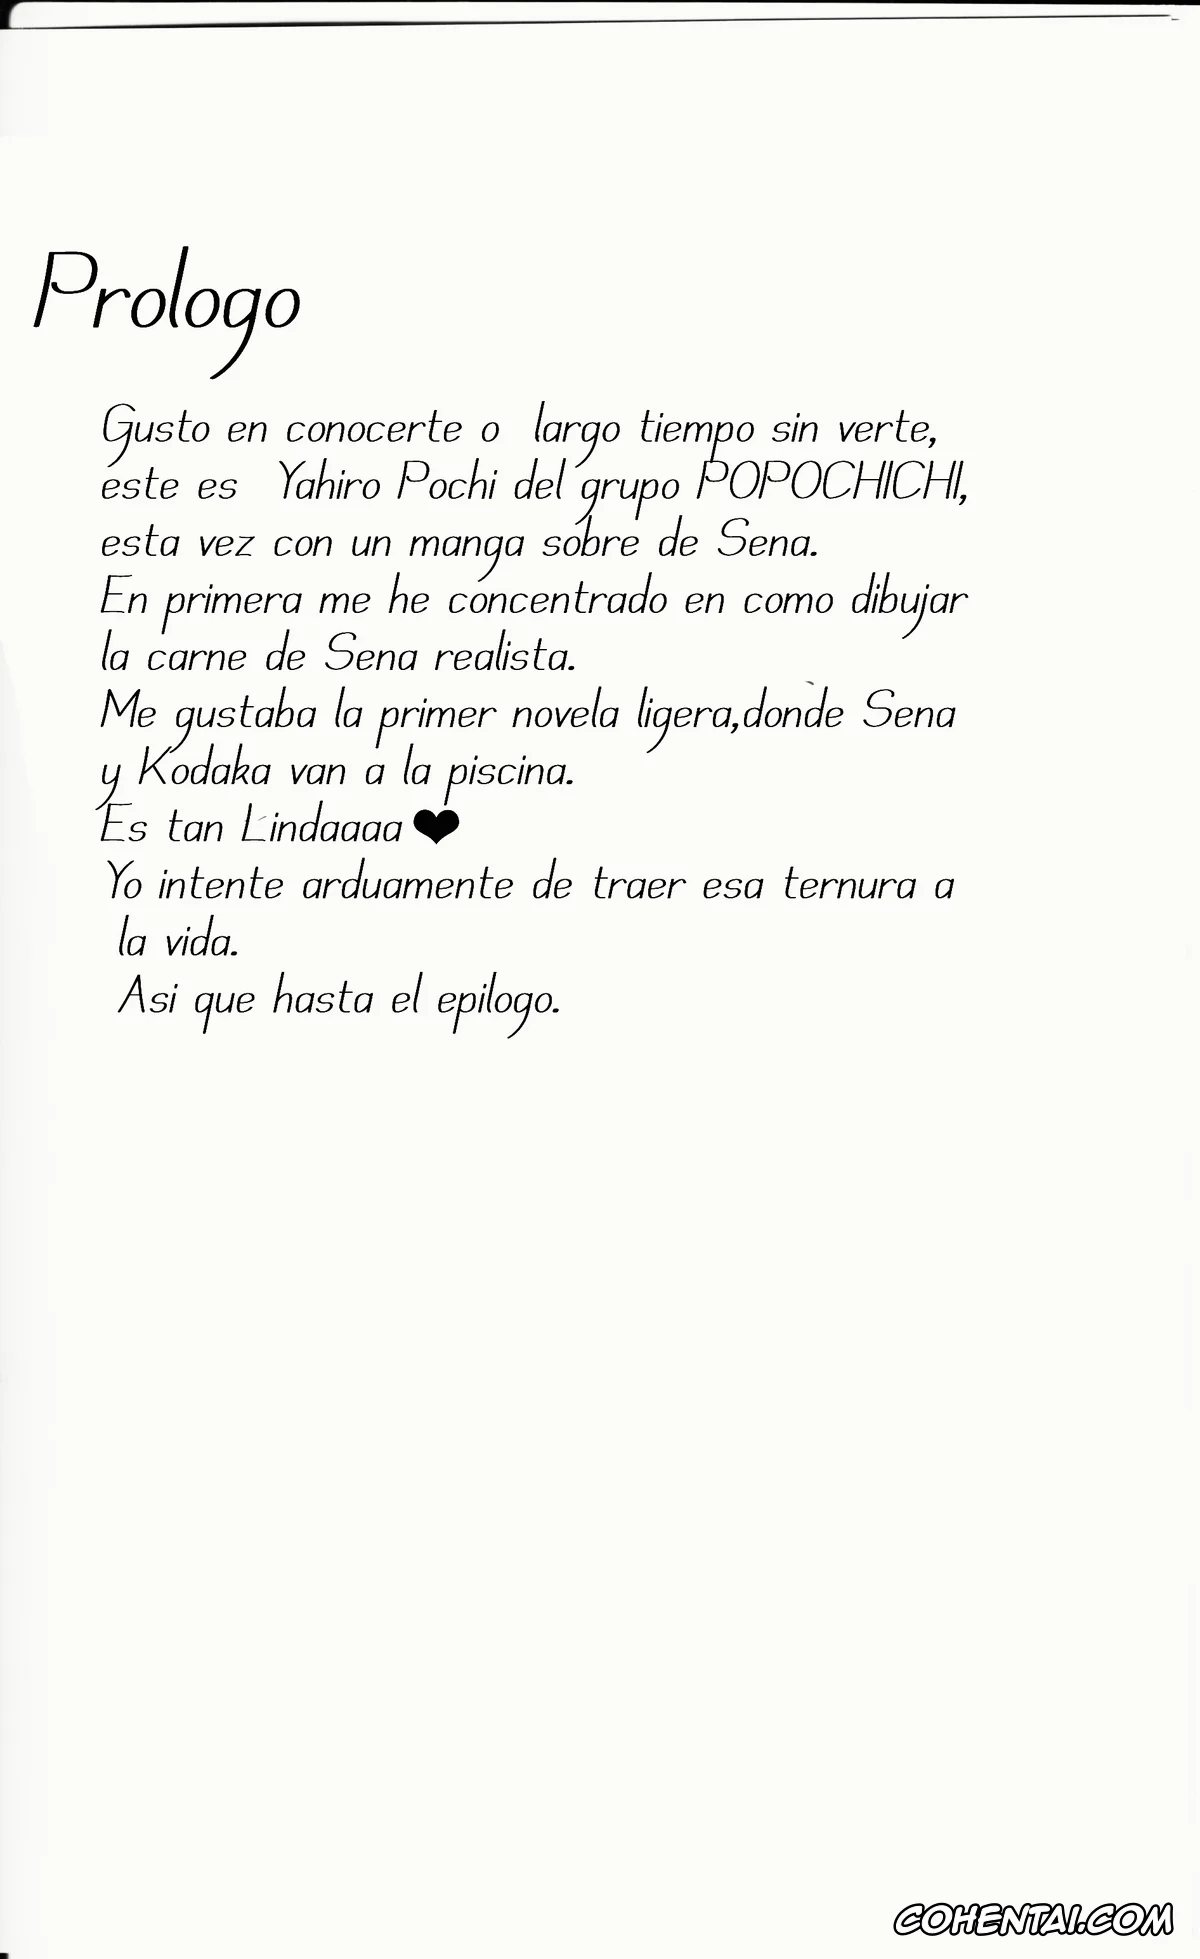 Prologo
Gusto en conocerte o largo tiempo sin verte,
este es Yahiro Pochi del grupo POPOCHICHI,
esta vez con un manga sobre de Sena.
En primera me he concentrado en como dibujar
la carne de Sena realista.
Me gustaba la primer novela ligera,donde Sena
y Kodaka van a la piscina.
Es tan Lindaaaa ❤
Yo intente arduamente de traer esa ternura a
la vida.
Asi que hasta el epilogo.
COHENTAI.COM